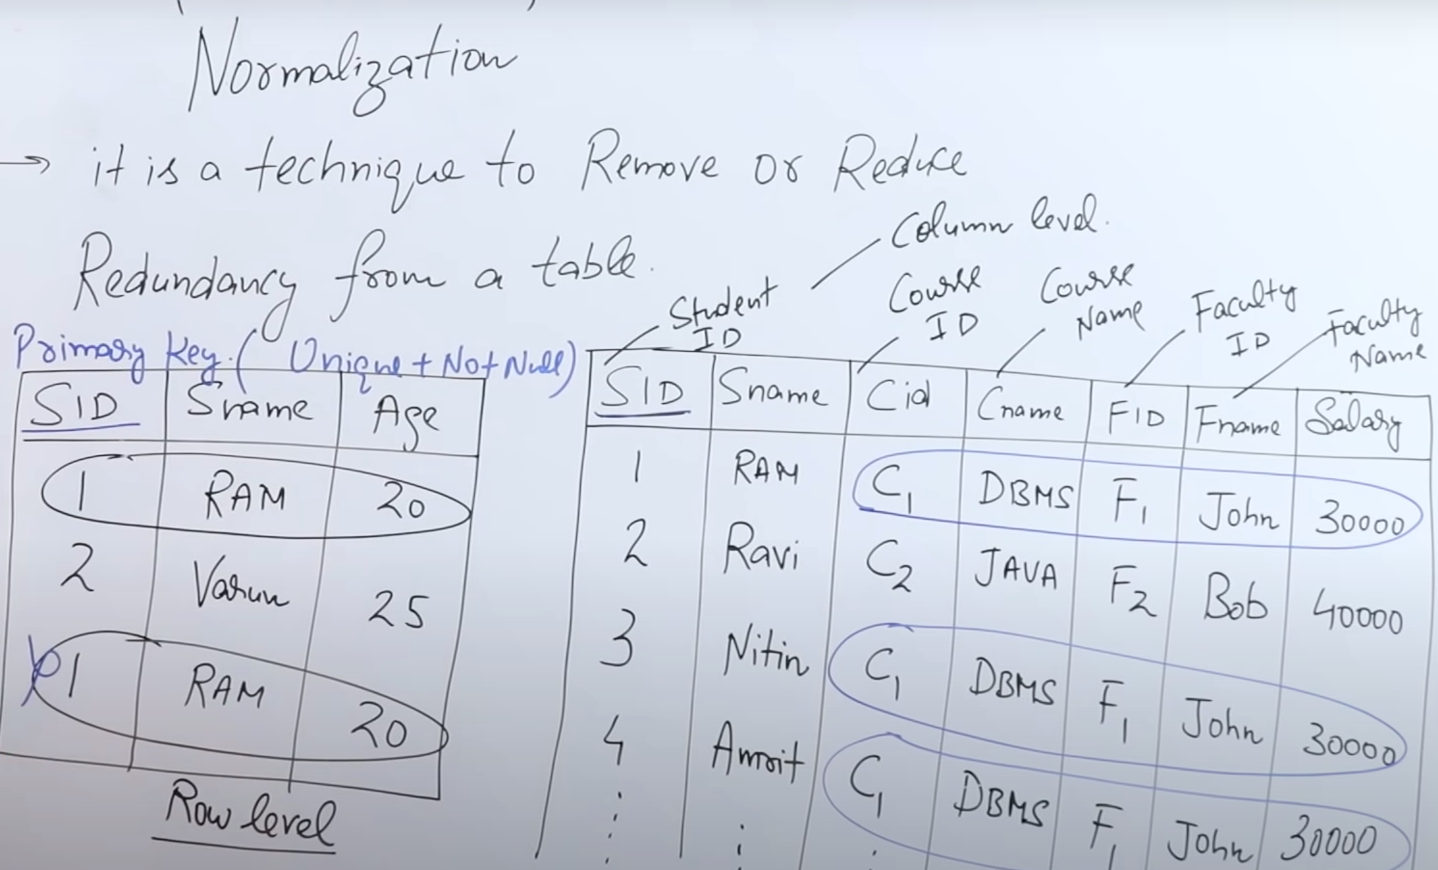 Normalization
→ it is a technique to Remove or Reduce
Redundancy from a table.
Column level.
Primary Key. ( Unique + Not Null)
SID Sname Age
1 RAM 20
2 Varun 25
1 RAM 20
Row level
Student ID
Course ID
Course Name
Faculty ID
Faculty Name
SID Sname Cid Cname FID Fname Salary
1 RAM C1 DBMS F1 John 30000
2 Ravi C2 JAVA F2 Bob 40000
3 Nitin C1 DBMS F1 John 30000
4 Amrit C1 DBMS F1 John 30000